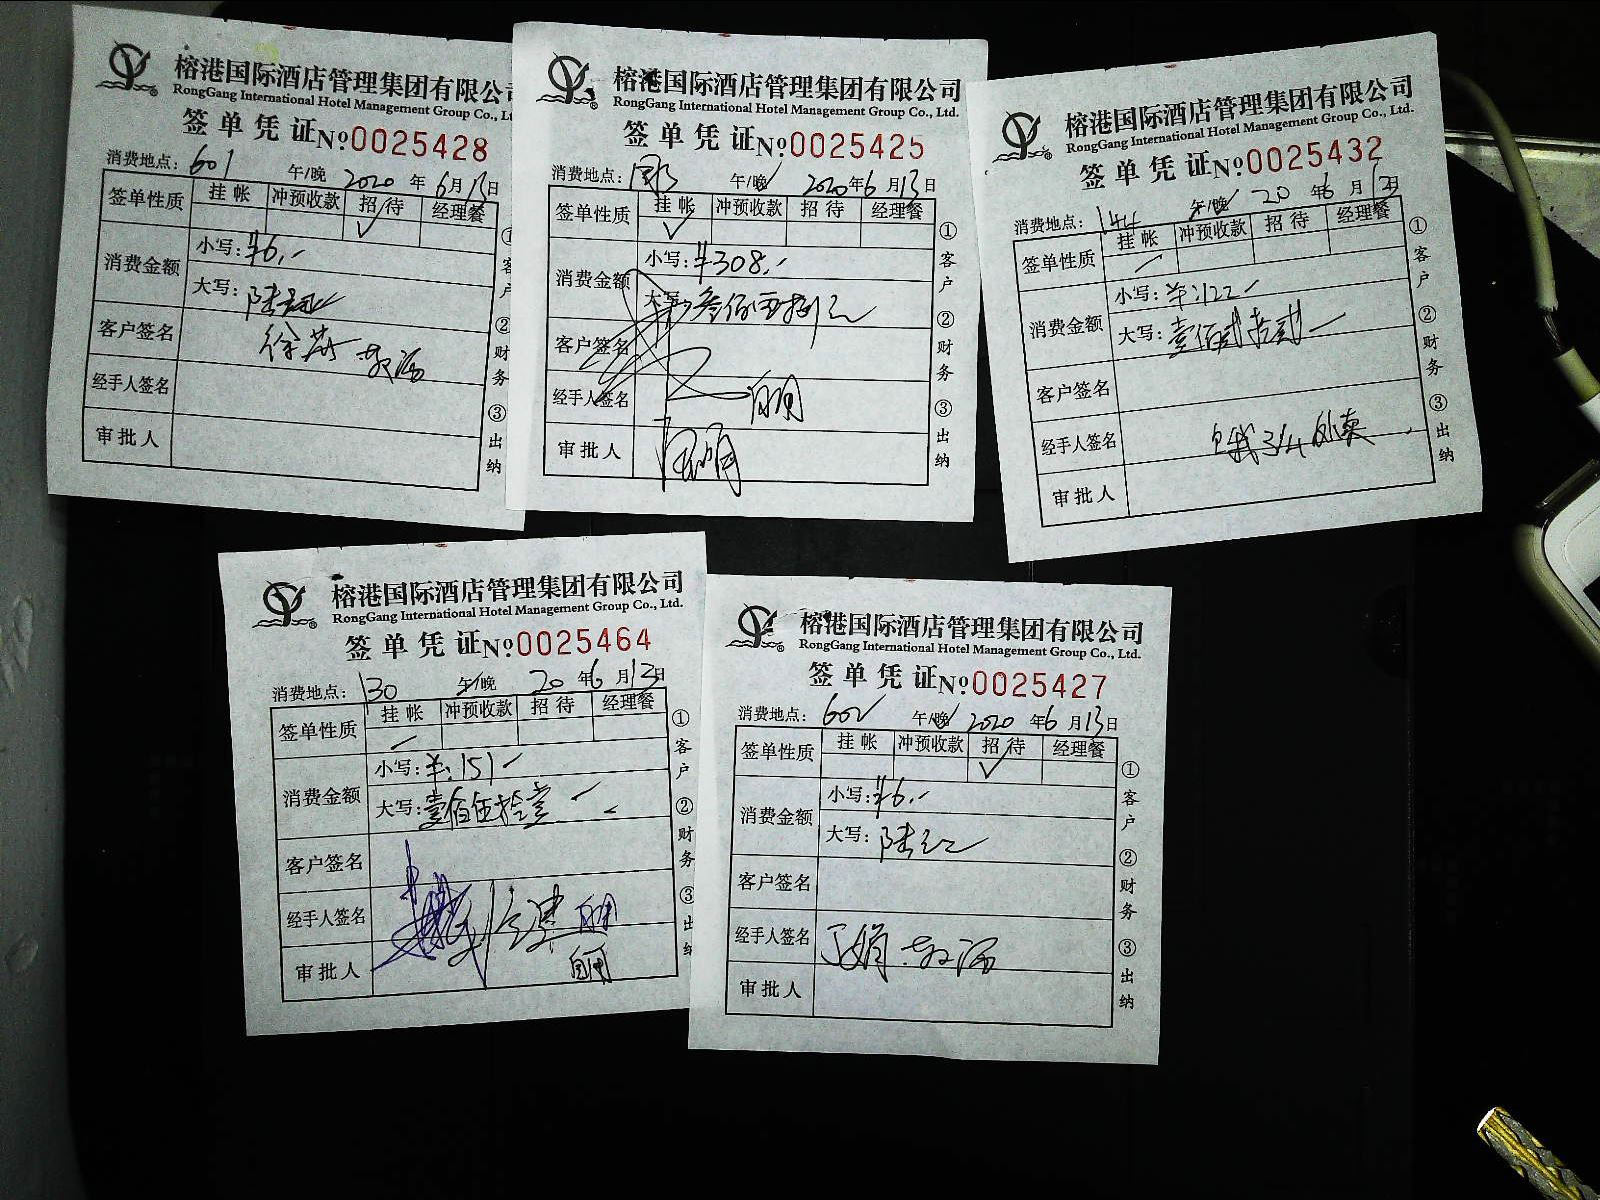 榕港国际酒店管理集团有限公司
RongGang International Hotel Management Group Co., Lt
签单凭证 No 0025428
消费地点: 601 午/晚 2020年6月13日
签单性质 挂帐 冲预收款 招待 经理餐
✓
消费金额 小写: ¥6.-
大写: 陆元
客户签名
经手人签名
审批人
①客户 ②财务 ③出纳
榕港国际酒店管理集团有限公司
RongGang International Hotel Management Group Co., Ltd.
签单凭证 No 0025425
消费地点: 午/晚 2020年6月13日
签单性质 挂帐 冲预收款 招待 经理餐
✓
消费金额 小写: ¥308.-
大写: 叁佰零捌元
客户签名
经手人签名
审批人
①客户 ②财务 ③出纳
榕港国际酒店管理集团有限公司
RongGang International Hotel Management Group Co., Ltd.
签单凭证 No 0025432
消费地点: 144 午/晚 20年6月13日
签单性质 挂帐 冲预收款 招待 经理餐
消费金额 小写: ¥:122-
大写: 壹佰贰拾贰
客户签名
经手人签名 外卖
审批人
①客户 ②财务 ③出纳
榕港国际酒店管理集团有限公司
RongGang International Hotel Management Group Co., Ltd.
签单凭证 No 0025464
消费地点: 130 午/晚 20年6月13日
签单性质 挂帐 冲预收款 招待 经理餐
消费金额 小写: ¥:151-
大写: 壹佰伍拾壹
客户签名
经手人签名
审批人
①客户 ②财务 ③出纳
榕港国际酒店管理集团有限公司
RongGang International Hotel Management Group Co., Ltd.
签单凭证 No 0025427
消费地点: 602 午/晚 2020年6月13日
签单性质 挂帐 冲预收款 招待 经理餐
✓
消费金额 小写: ¥6.-
大写: 陆元
客户签名
经手人签名
审批人
①客户 ②财务 ③出纳